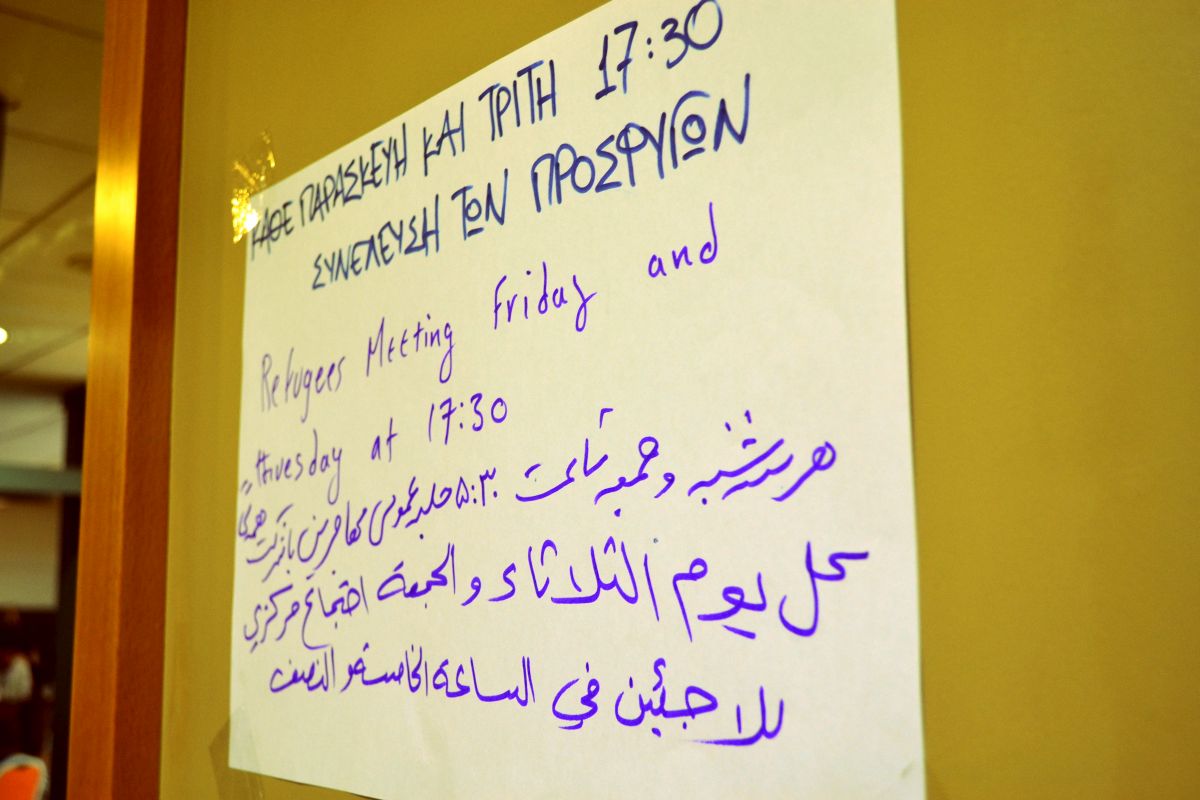 ΚΑΘΕ ΠΑΡΑΣΚΕΥΗ ΚΑΙ ΤΡΙΤΗ 17:30
ΣΥΝΕΛΕΥΣΗ ΤΩΝ ΠΡΟΣΦΥΓΩΝ
Refugees Meeting Friday and
thuesday at 17:30
هر سه شنبه و جمعه ساعت ۵:۳۰ جلسه عمومی مهاجرین با شرکت همگی
كل يوم الثلاثاء و الجمعة اجتماع مركزي
للاجئين في الساعة الخامسة و النصف